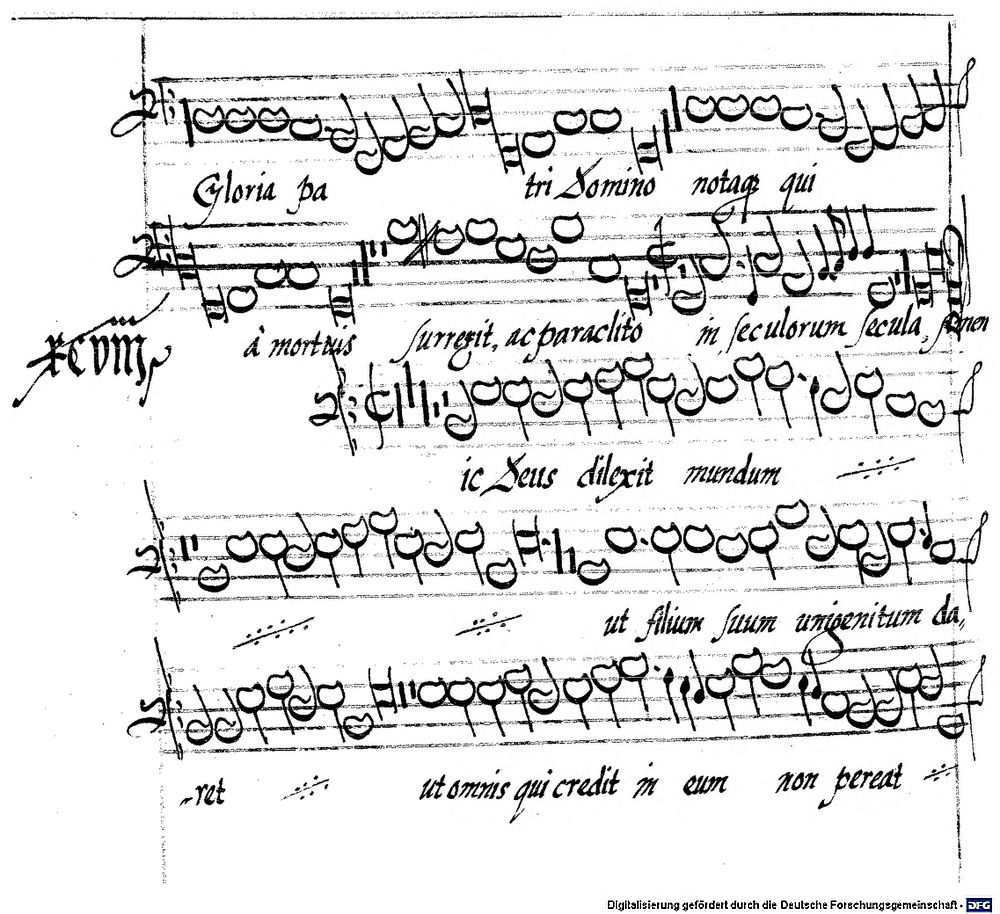 Gloria pa tri Domino notaqꝫ qui
à mortuis surrexit, ac paraclito in seculorum secula,
ic Deus dilexit mundum
ut filium suum unigenitum da,,
-ret ut omnis qui credit in eum non pereat
Digitalisierung gefördert durch die Deutsche Forschungsgemeinschaft - DFG